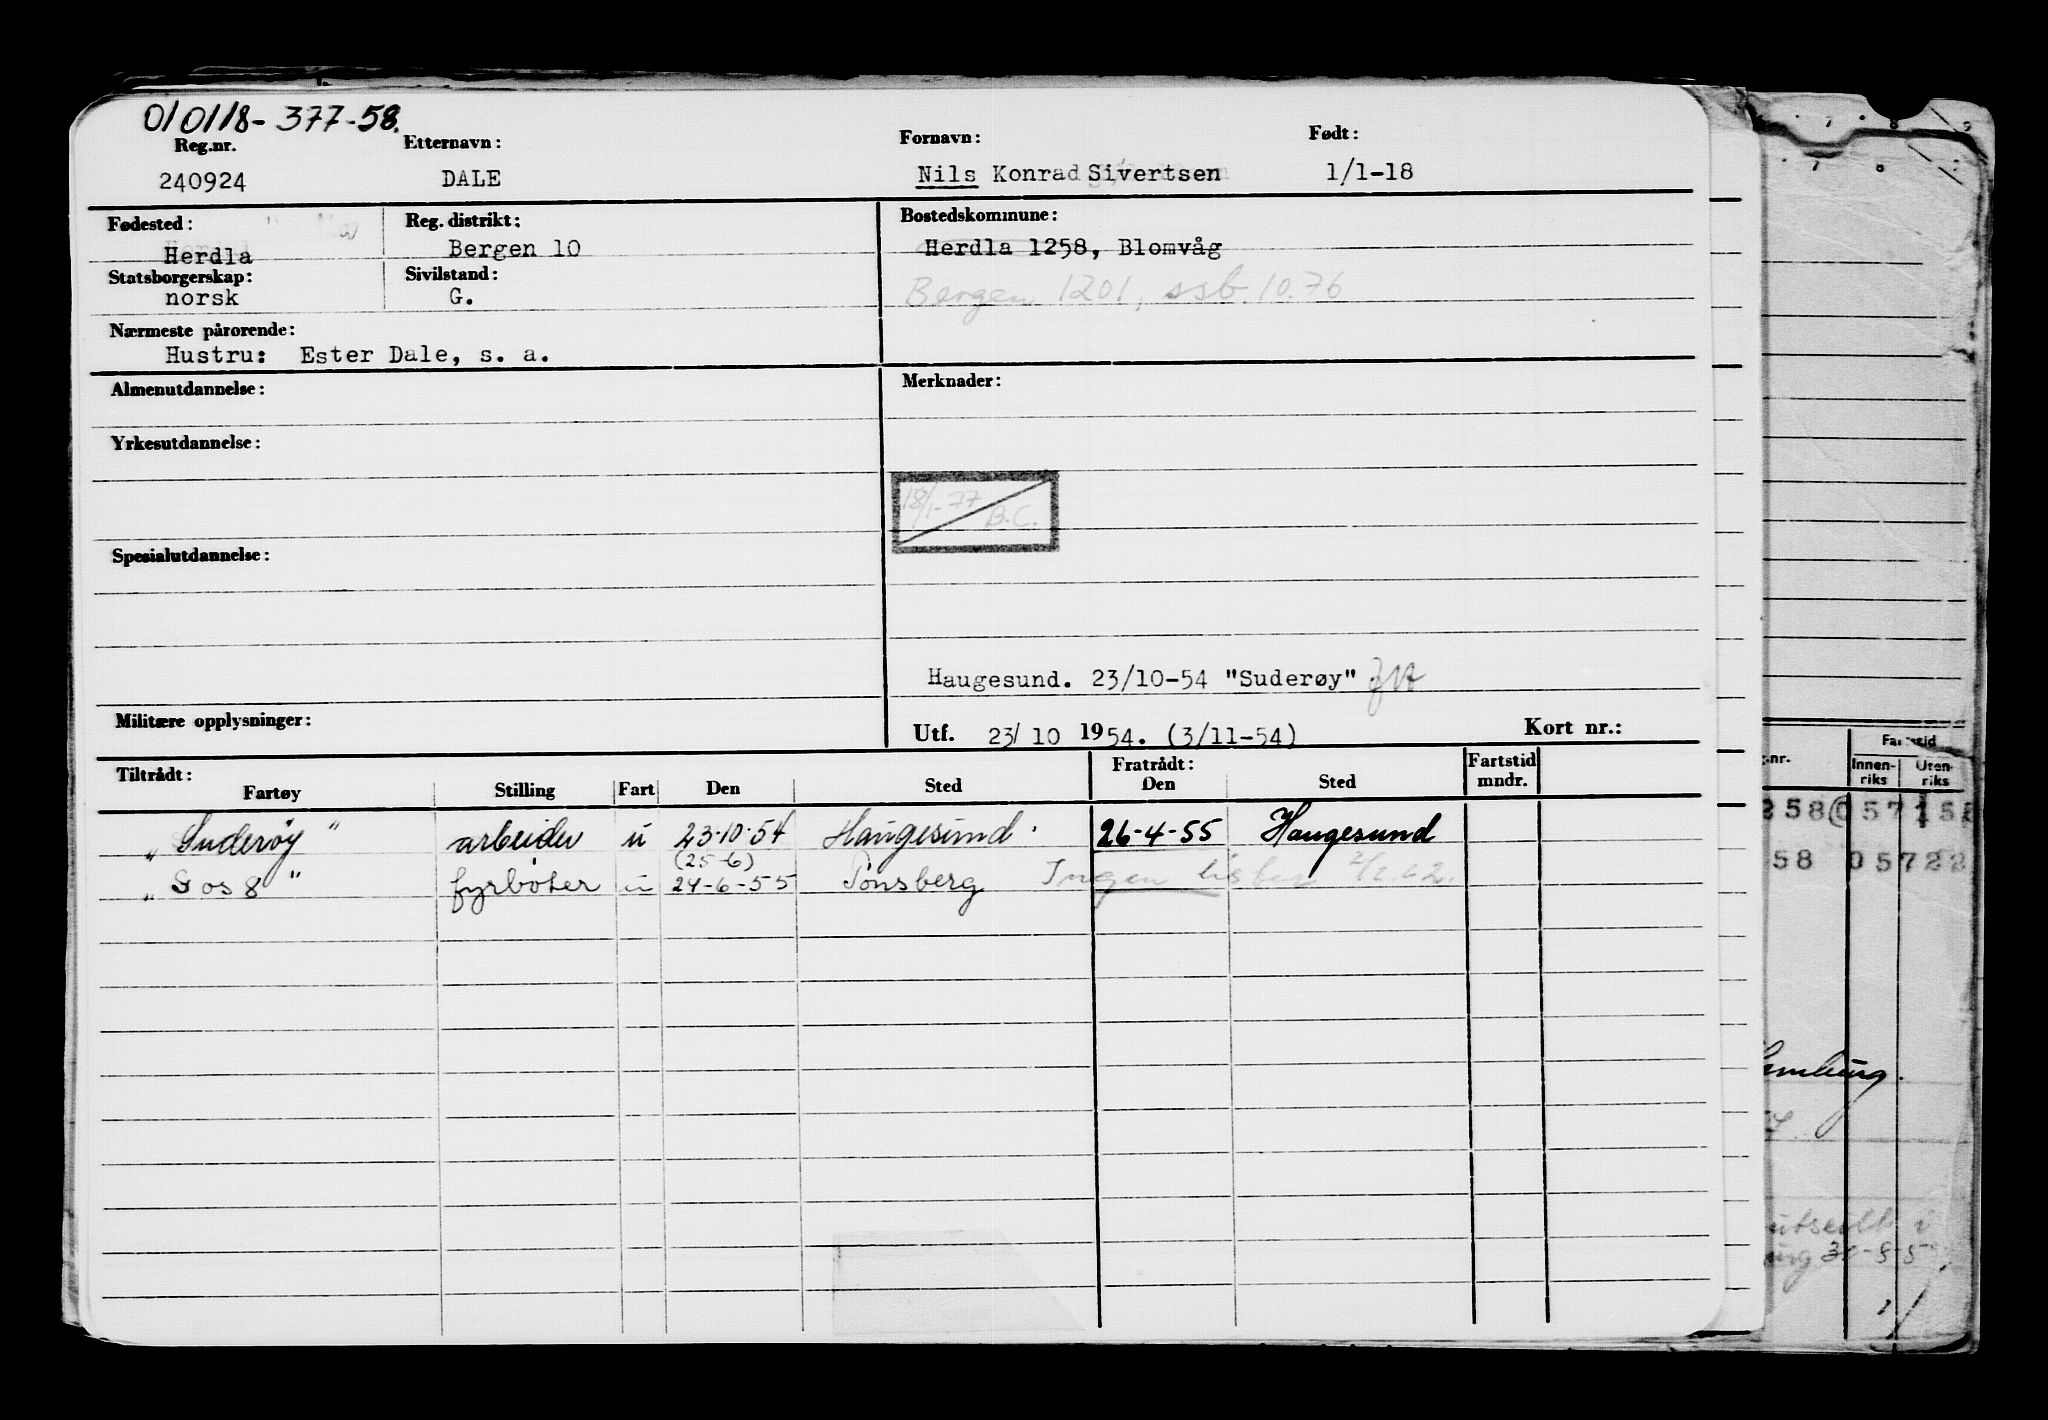 010118-377-58.
Reg.nr. Etternavn: Fornavn: Født:
240924 DALE Nils Konrad Sivertsen 1/1-18
Fødested: Reg. distrikt: Bostedskommune:
Herdla Bergen 10 Herdla 1258, Blomvåg
Statsborgerskap: Sivilstand:
norsk G. Bergen 1201, ssb. 10.76
Nærmeste pårørende:
Hustru: Ester Dale, s. a.
Almenutdannelse: Merknader:
Yrkesutdannelse:
18/1-77 B.C.
Spesialutdannelse:
Haugesund. 23/10-54 "Suderøy"
Militære opplysninger: Utf. 23/10 1954. (3/11-54) Kort nr.:
Tiltrådt: Fratrådt: Fartstid
Fartøy Stilling Fart Den Sted Den Sted mndr.
"Suderøy" arbeider u 23-10-54 Haugesund. 26-4-55 Haugesund
(25-6)
"Sos 8" fyrbøter u 24-6-55 Tønsberg Ingen lister 2/2 62.
7 8 9
7 8
Fartstid
Innen- Uten-
riks riks
258 057
58 05722
utseilt i